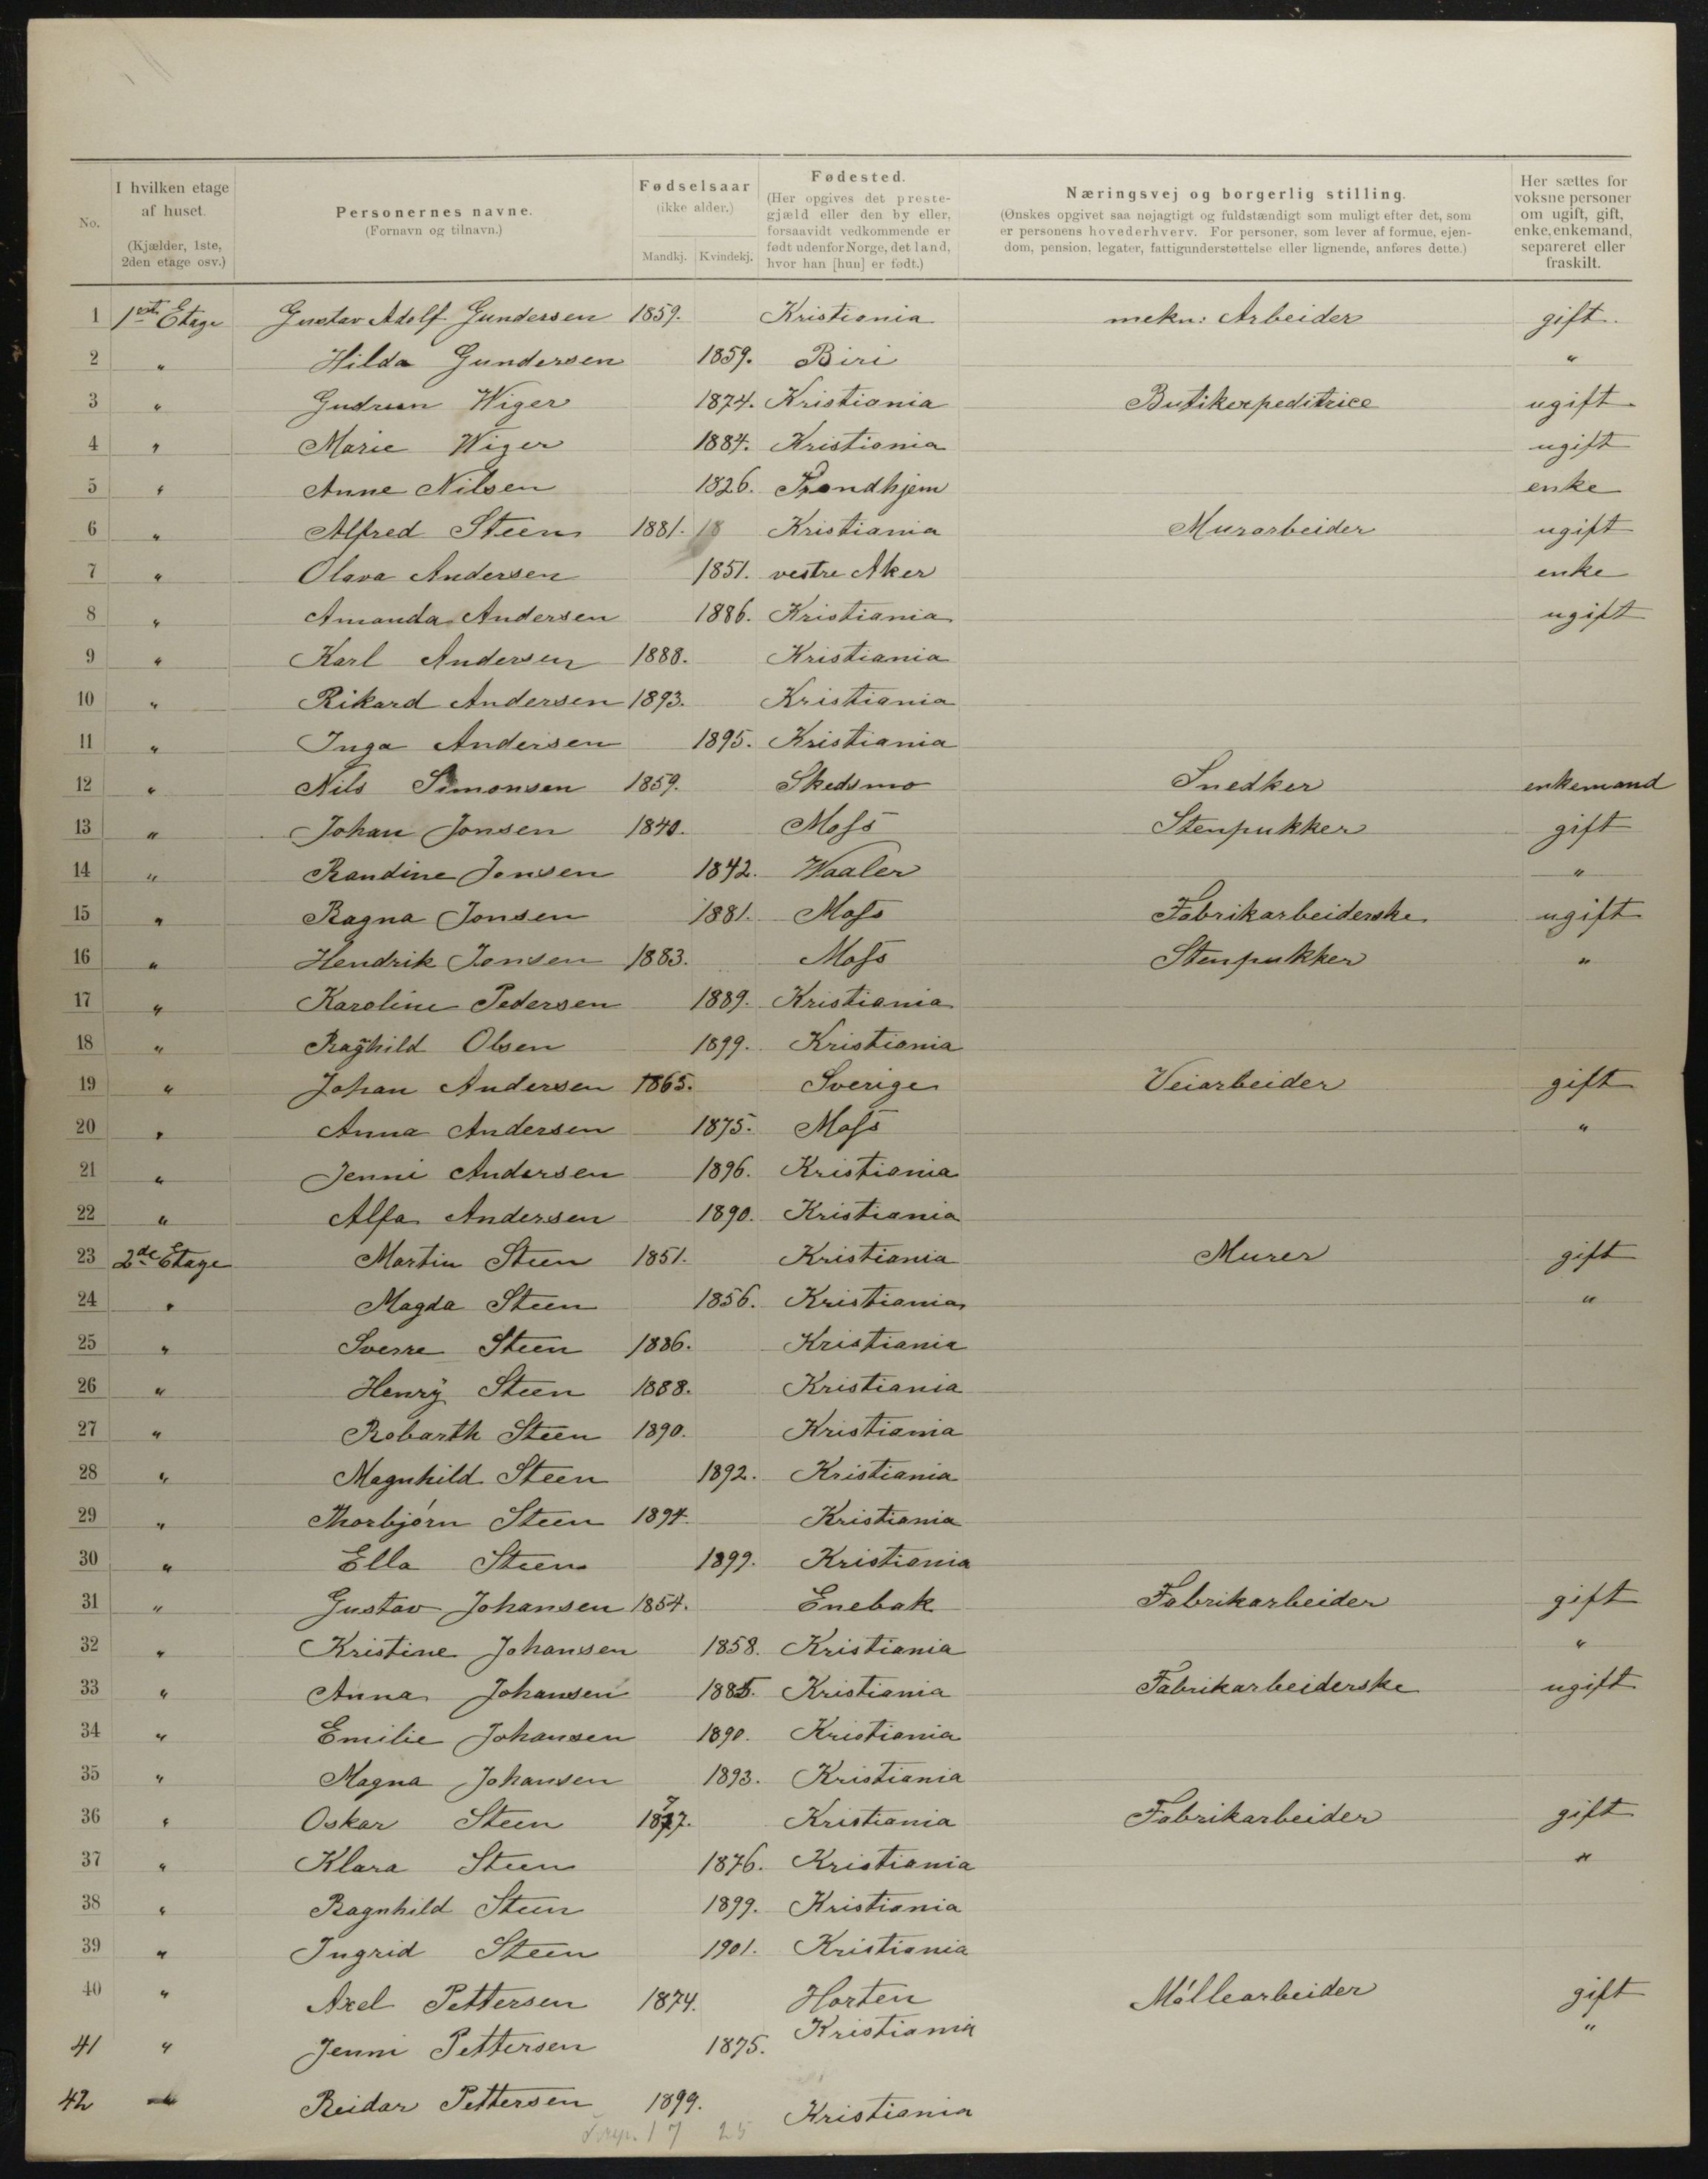 No. | I hvilken etage af huset. (Kjælder, 1ste, 2den etage osv.) | Personernes navne. (Fornavn og tilnavn.) | Fødselsaar (ikke alder.) Mandkj. | Kvindekj. | Fødested. (Her opgives det prestegjæld eller den by eller, forsaavidt vedkommende er født udenfor Norge, det land, hvor han [hun] er født.) | Næringsvej og borgerlig stilling. (Ønskes opgivet saa nøjagtigt og fuldstændigt som muligt efter det, som er personens hovederhverv. For personer, som lever af formue, ejendom, pension, legater, fattigunderstøttelse eller lignende, anføres dette.) | Her sættes for voksne personer om ugift, gift, enke, enkemand, separeret eller fraskilt.
1 1ste Etage Gustav Adolf Gundersen 1859. Kristiania mekn: Arbeider gift.
2 " Hilda Gundersen 1859. Biri "
3 " Gudrun Wiger 1874. Kristiania Butikexpeditrice ugift
4 " Marie Wiger 1884. Kristiania ugift
5 " Anne Nilsen 1826. Trondhjem enke
6 " Alfred Steen 1881. 18 Kristiania Murarbeider ugift
7 " Olava Andersen 1851. vestre Aker enke
8 " Amanda Andersen 1886. Kristiania ugift
9 " Karl Andersen 1888. Kristiania
10 " Rikard Andersen 1893. Kristiania
11 " Inga Andersen 1895. Kristiania
12 " Nils Simonsen 1859. Skedsmo Snedker enkemand
13 " Johan Jonsen 1840. Moss Stenpukker gift
14 " Randine Jonsen 1842. Waaler "
15 " Ragna Jonsen 1881. Moss Fabrikarbeiderske ugift
16 " Hendrik Jonsen 1883. Moss Stenpukker "
17 " Karoline Pedersen 1889. Kristiania
18 " Raghild Olsen 1899. Kristiania
19 " Johan Andersen 1865. Sverige Veiarbeider gift
20 " Anna Andersen 1875. Moss "
21 " Jenni Andersen 1896. Kristiania
22 " Alfa Andersen 1890. Kristiania
23 2de Etage Martin Steen 1851. Kristiania Murer gift
24 " Magda Steen 1856. Kristiania "
25 " Sverre Steen 1886. Kristiania
26 " Henrÿ Steen 1888. Kristiania
27 " Robarth Steen 1890. Kristiania
28 " Magnhild Steen 1892. Kristiania
29 " Thorbjørn Steen 1894. Kristiania
30 " Ella Steen 1899. Kristiania
31 " Gustav Johansen 1854. Enebak Fabrikarbeider gift
32 " Kristine Johansen 1858. Kristiania "
33 " Anna Johansen 1885. Kristiania Fabrikarbeiderske ugift
34 " Emilie Johansen 1890. Kristiania
35 " Magna Johansen 1893. Kristiania
36 " Oskar Steen 1877. Kristiania Fabrikarbeider gift
37 " Klara Steen 1876. Kristiania "
38 " Ragnhild Steen 1899. Kristiania
39 " Ingrid Steen 1901. Kristiania
40 " Axel Pettersen 1874. Horten Møllearbeider gift
41 " Jenni Pettersen 1875. Kristiania "
42 " Reidar Pettersen 1899. Kristiania
17 25